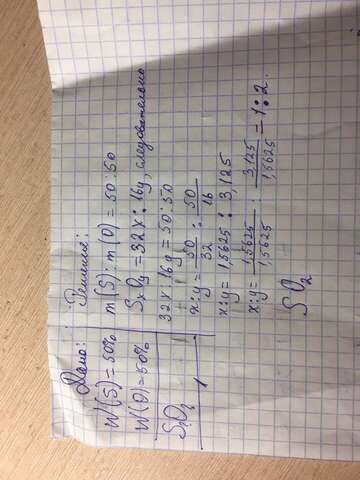 Дано:
W(S) = 50%
W(O) = 50%
Решение:
m(S) : m(O) = 50 : 50
SxOy = 32x : 16y, следовательно
32x : 16y = 50 : 50
x : y = 50/32 : 50/16
x : y = 1,5625 : 3,125
x : y = 1,5625/1,5625 : 3,125/1,5625 = 1 : 2.
SO2